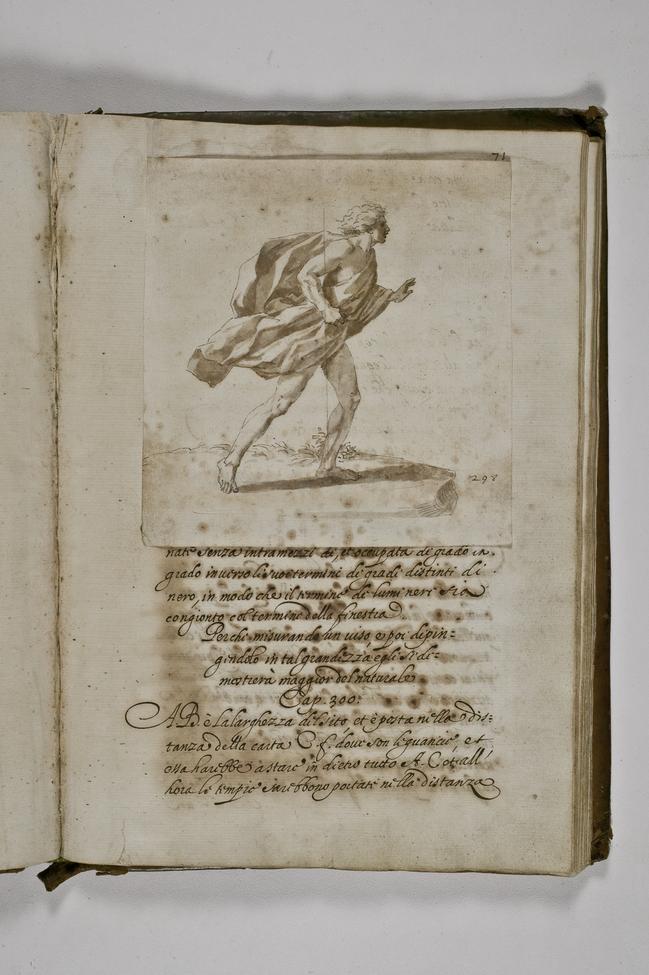 71
298
nate senza intramezzi di, et occupata di grado in
grado inverso li suoi termini di gradi distinti di
nero, in modo che il termine di lumineri sia
congionto col termine della finestra.
Perche misurando un viso, e poi dipin=
gindolo in tal grandezza egli si di=
mostrerà maggior del naturale
Cap. 300:
A B. è la larghezza del sito et è posta nella dis=
tanza della carta C f. doue son le guancie, et
essa harebbe a stare in dietro tutto A. C et all'
hora le tempie sarebbono portate nella distanza